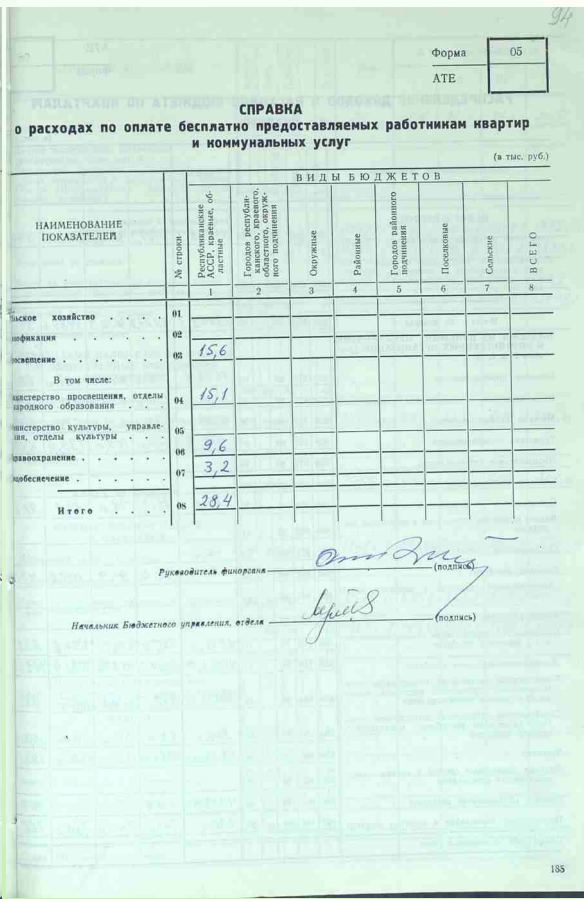 94
Форма 05
АТЕ
СПРАВКА
о расходах по оплате бесплатно предоставляемых работникам квартир
и коммунальных услуг
(в тыс. руб.)
НАИМЕНОВАНИЕ ПОКАЗАТЕЛЕЙ
№ строки
ВИДЫ БЮДЖЕТОВ
Республиканские АССР, краевые, областные
Городов республиканского, краевого, областного, окружного подчинения
Окружные
Районные
Городов районного подчинения
Поселковые
Сельские
ВСЕГО
1 2 3 4 5 6 7 8
хозяйство . . . . 01
. . . . . . 02
. . . . . . . 03 15,6
В том числе:
просвещения, отделы
образования . . . 04 15,1
культуры, управле-
отделы культуры . . . 05
. . . . . . 06 9,6
. . . . . . 07 3,2
Итого . . . . 08 28,4
Руководитель финоргана (подпись)
Начальник Бюджетного управления, отдела (подпись)
185